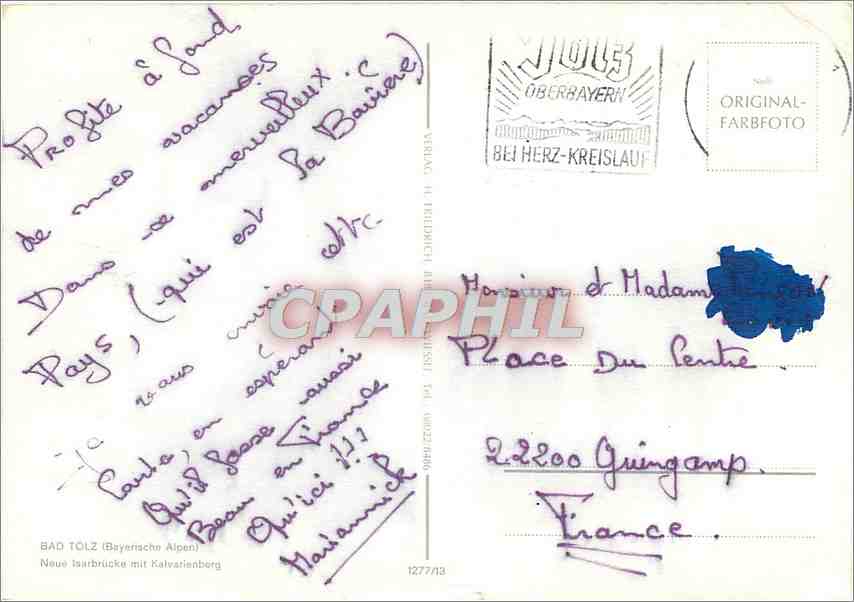 Profite à fond
de mes vacances
Dans ce merveilleux
Pays, (qui est la Bavière)
Je vous envoie cette
Carte, en espérant
Qu'il fasse aussi
Beau en France
Qu'ici !!!
Mariannick
BAD TÖLZ (Bayerische Alpen)
Neue Isarbrücke mit Kalvarienberg
1277/13
TÖLZ
OBERBAYERN
BEI HERZ-KREISLAUF
ORIGINAL-
FARBFOTO
Monsieur et Madame
Place Du Centre.
22200 Guingamp.
France.
CPAPHIL